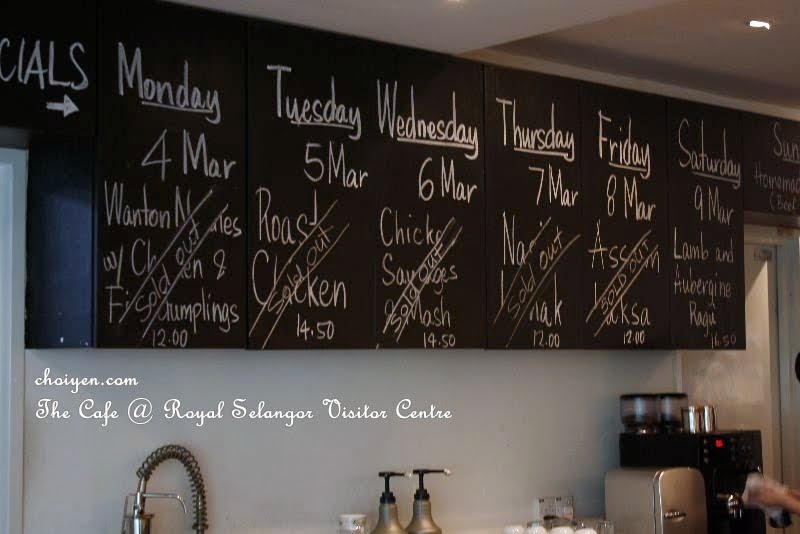 CIALS
Monday
4 Mar
Wanton
w/ &
Dumplings
12.00
sold out
Tuesday
5 Mar
Roast
Chicken
14.50
sold out
Wednesday
6 Mar
Chicken
Sausages
& Mash
14.50
sold out
Thursday
7 Mar
Nasi
12.00
sold out
Friday
8 Mar
Assam
Laksa
12.00
sold out
Saturday
9 Mar
Lamb and
Aubergine
Ragu
16.50
Sun
Homema
(Beef
choiyen.com
The Cafe @ Royal Selangor Visitor Centre